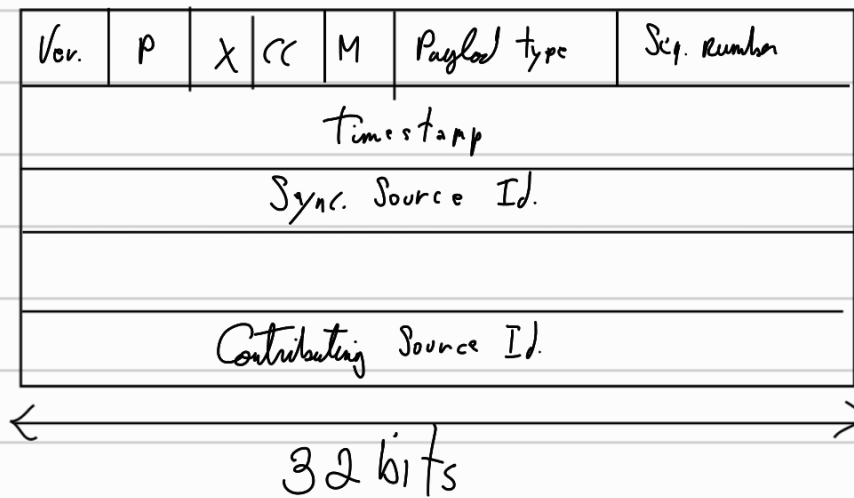 Ver. P X CC M Paylod type Seq. number
Timestamp
Sync. Source Id.
Contributing Source Id.
32 bits